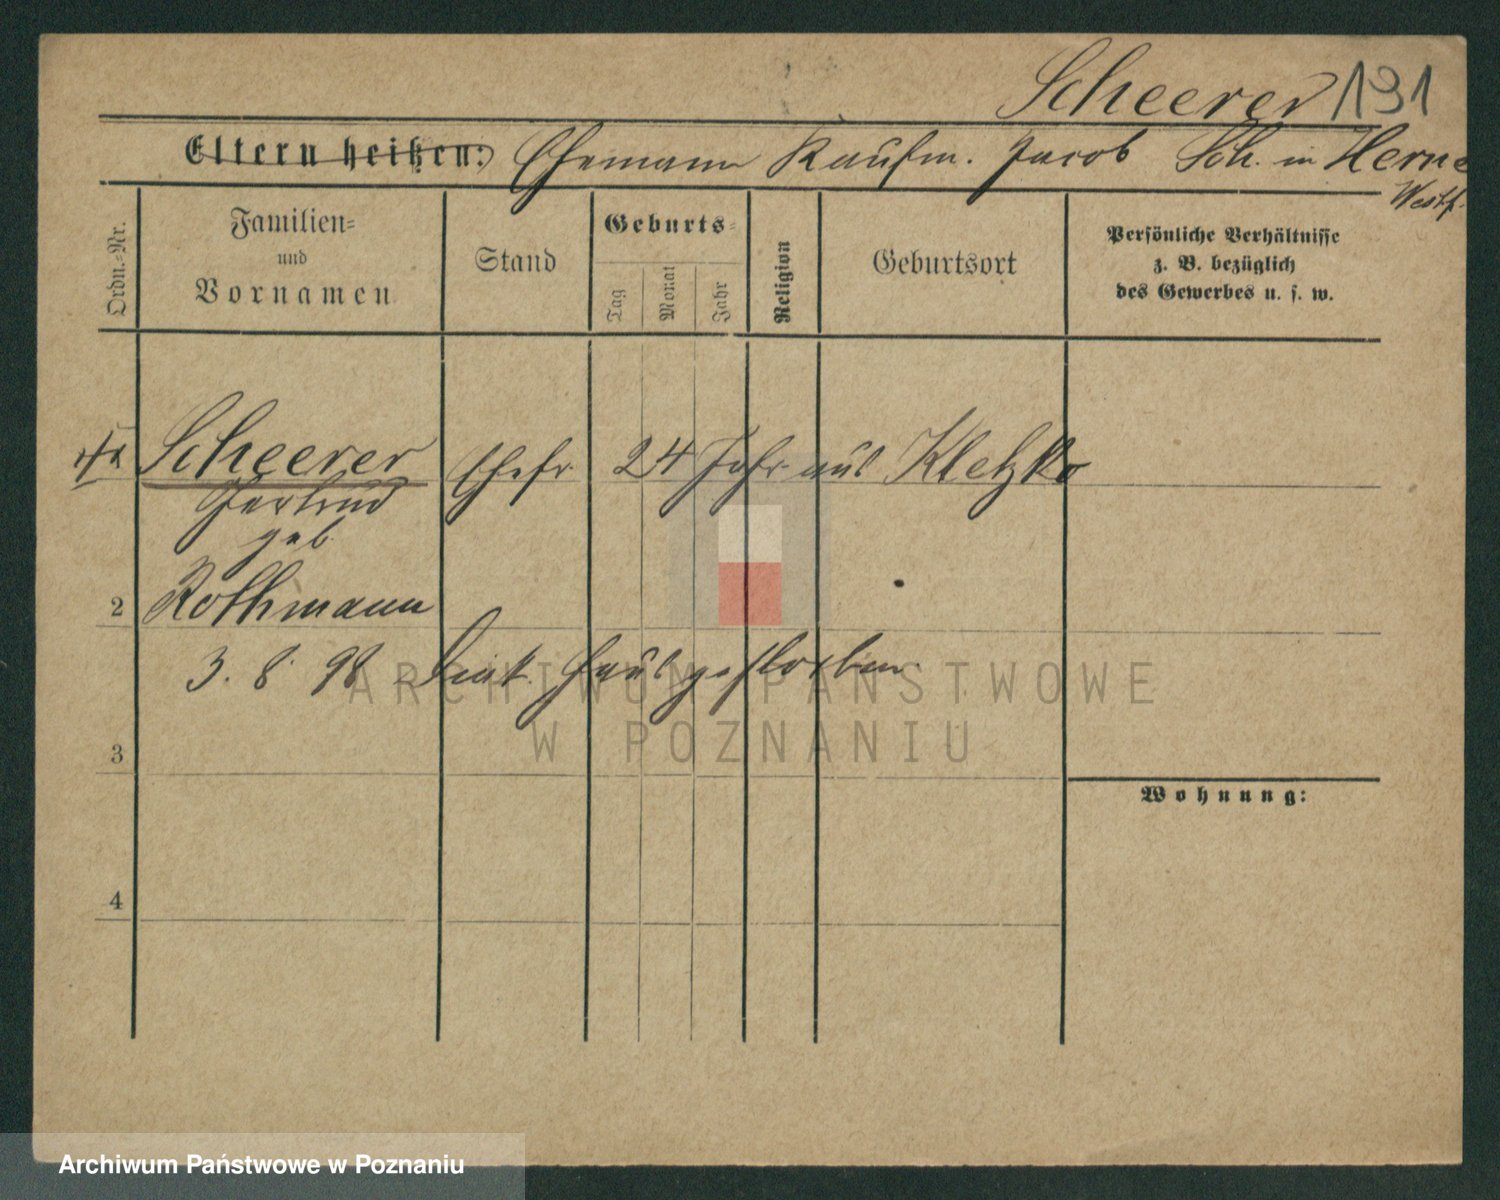 Scheerer 191
Eltern heißen: Ehemann Kaufm. Jacob Sch. in Herne
Westf.
Ordn.-Nr.
Familien-
und
Vornamen
Stand
Geburts-
Tag
Monat
Jahr
Religion
Geburtsort
Persönliche Verhältnisse
z. B. bezüglich
des Gewerbes u. s. w.
Scheerer Ehefr. 24 Jahr aus Kletzko
Gertrud
geb.
2 Rothmann
3. 8. 98 Diak. Haus gestorben
ARCHIWUM PAŃSTWOWE
W POZNANIU
3
Wohnung:
4
Archiwum Państwowe w Poznaniu